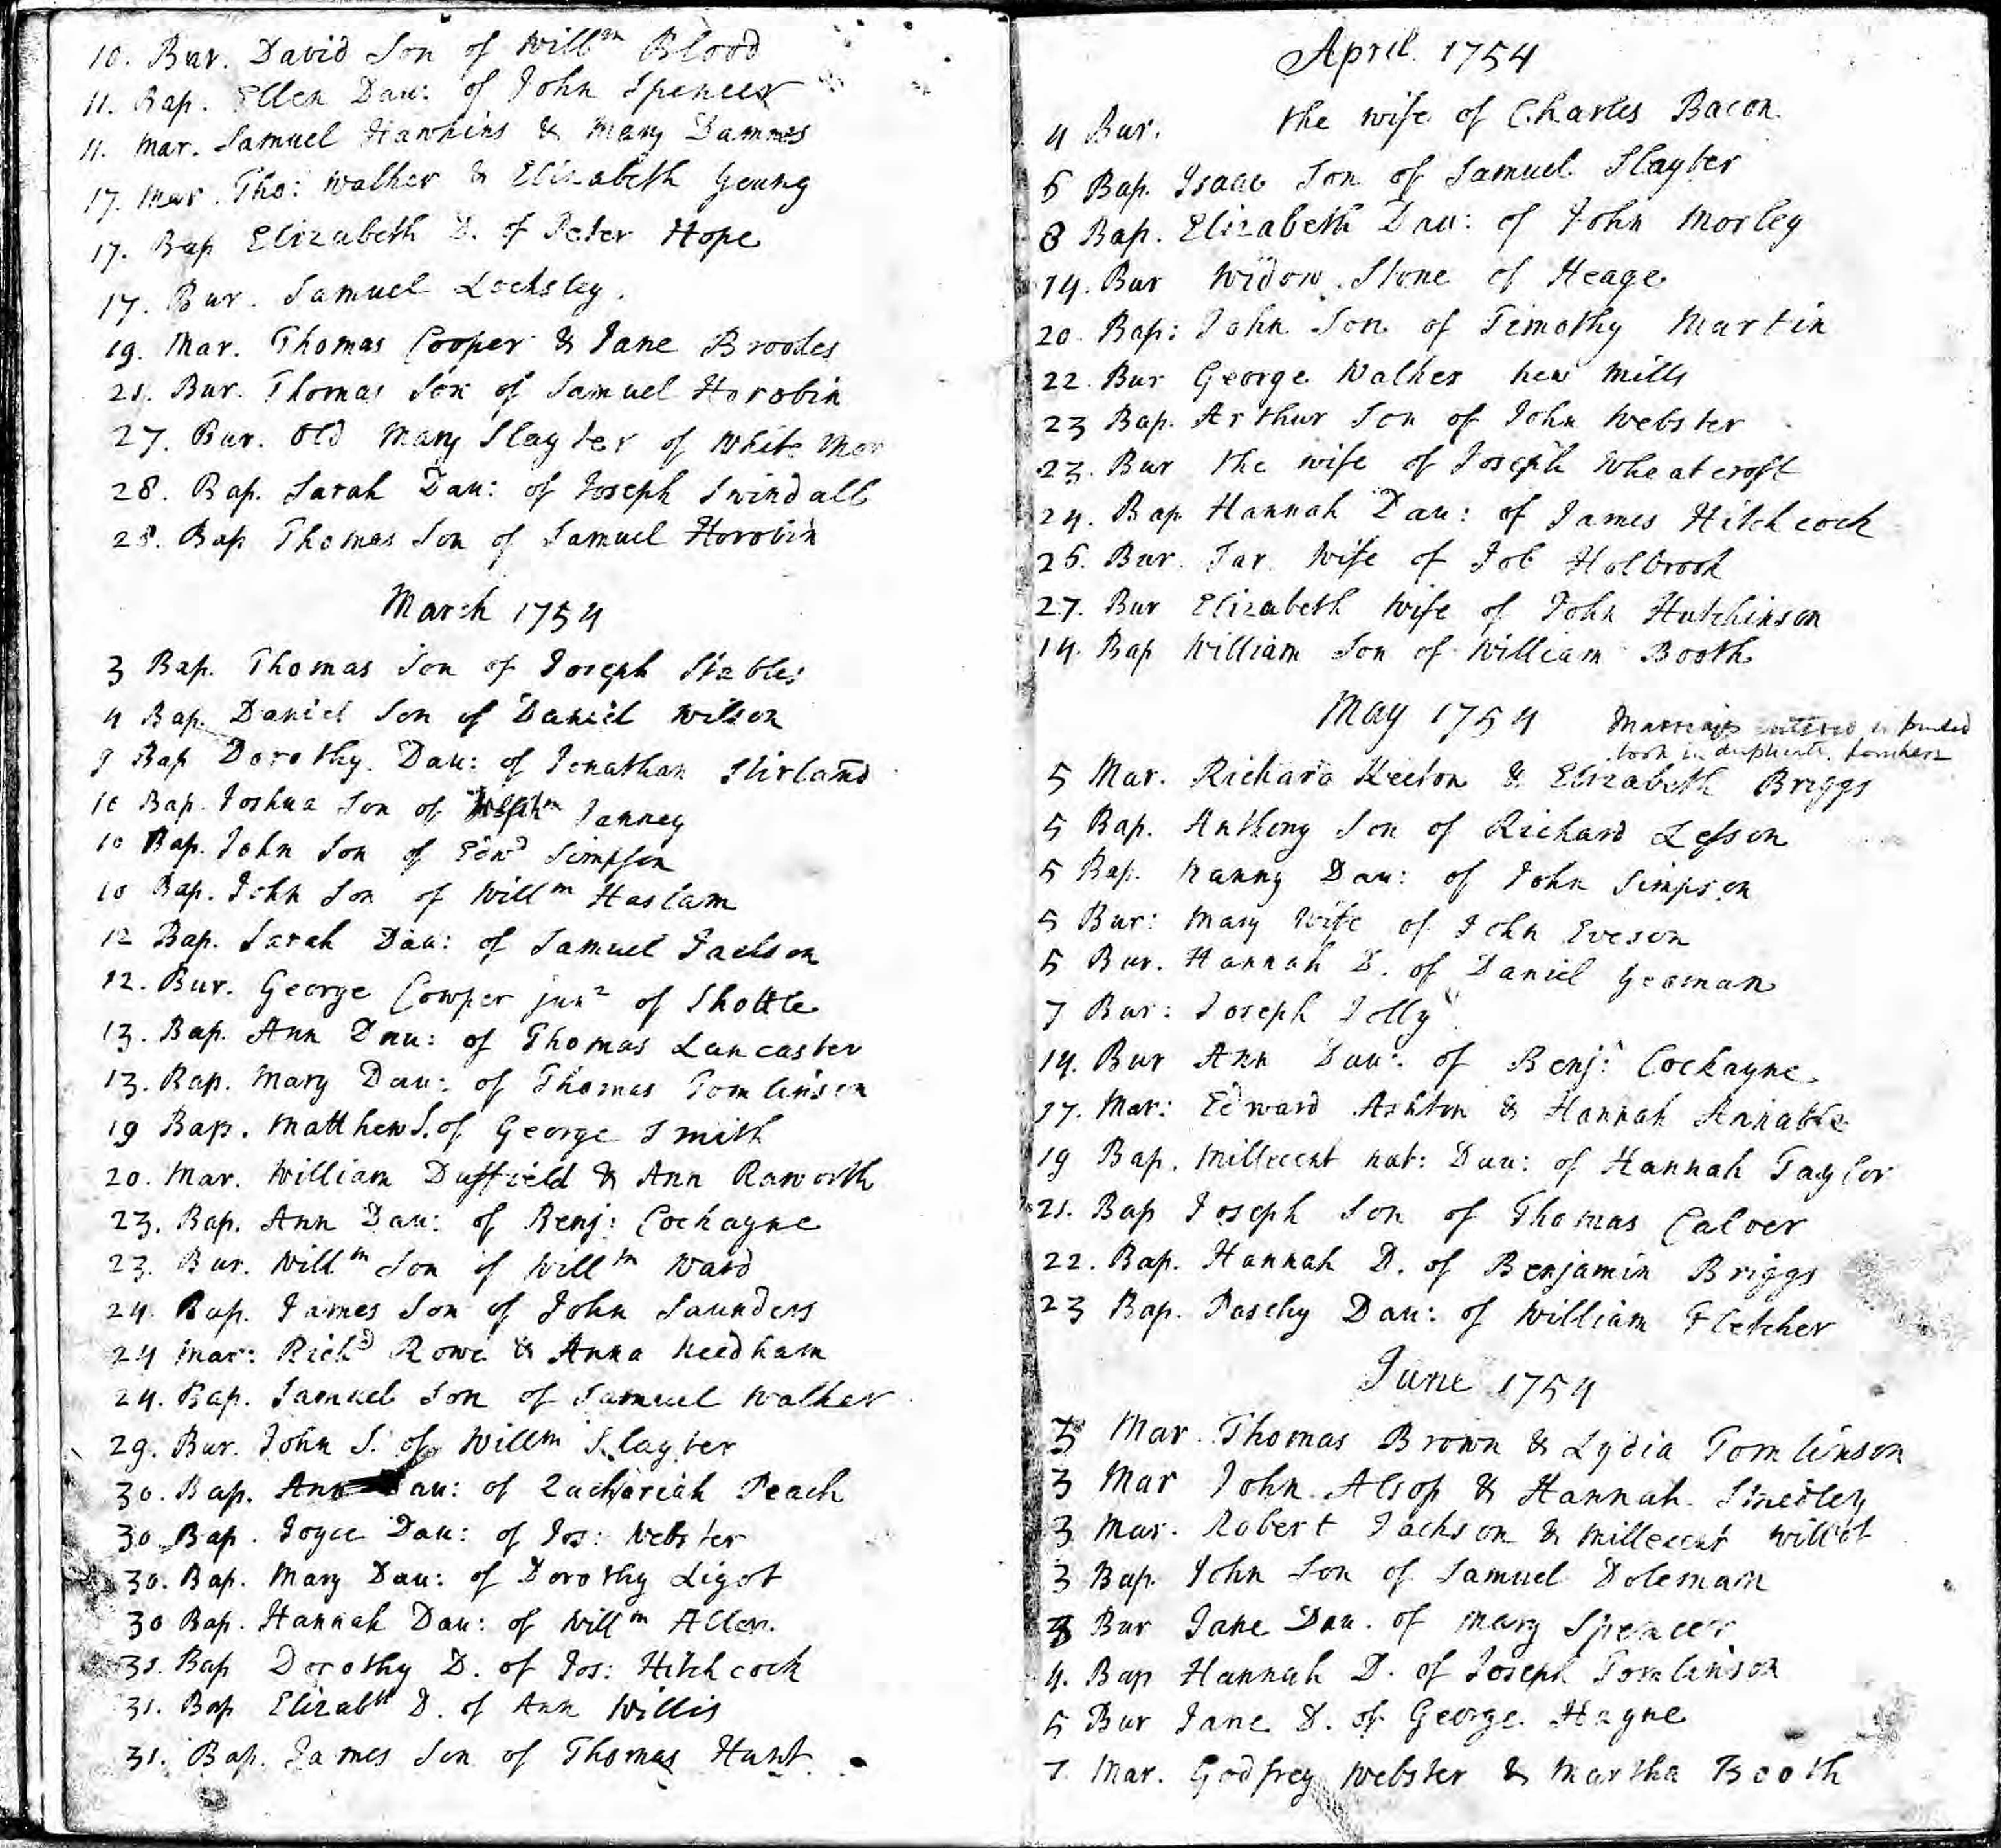 10. Bur. David Son of Willm Blood
11. Bap. Ellen Dau: of John Spencer
11. Mar. Samuel Hawkins & Mary Damnes
17. Mar. Tho: Walker & Elizabeth Young
17. Bap Elizabeth D. of Peter Hope
17. Bur. Samuel Locksley.
19. Mar. Thomas Cooper & Jane Broodes
21. Bur. Thomas Son of Samuel Horobin
27. Bur. Old Mary Slayter of White Mor
28. Bap. Sarah Dau: of Joseph Swindall
28. Bap Thomas Son of Samuel Horobin
March 1754
3 Bap. Thomas Son of Joseph Stables
4 Bap. Daniel Son of Daniel Wilson
9 Bap Dorothy. Dau: of Jonathan Stirland
10 Bap. Joshua Son of Janney
10 Bap. John Son of Edwd Simpson
10 Bap. John Son of Willm Haslam
12 Bap. Sarah Dau: of Samuel Jackson
12. Bur. George Cowper junr of Shottle
13. Bap. Ann Dau: of Thomas Lancaster
13. Bap. Mary Dau: of Thomas Tomlinson
19 Bap. Matthew S. of George Smith
20. Mar. William Duffield & Ann Raworth
23. Bap. Ann Dau: of Benj: Cockayne
23. Bur. Willm Son of Willm Ward
24. Bap. James Son of John Saunders
24 Mar: Richd Rowe & Anna Needham
24. Bap. Samuel Son of Samuel Walker
29. Bur. John S. of Willm Slayter
30. Bap. Ann Dau: of Zachariah Peach
30. Bap. Joyce Dau: of Jos: Webster
30. Bap. Mary Dau: of Dorothy Ligot
30 Bap. Hannah Dau: of Willm Allen.
31. Bap Dorothy D. of Jos: Hitchcock
31. Bap Elizabth D. of Ann Willis
31. Bap. James Son of Thomas Hunt.
April 1754
4 Bur. the wife of Charles Bacon
6 Bap. Isaac Son of Samuel Slayter
8 Bap. Elizabeth Dau: of John Morley
14. Bur Widow Stone of Heage
20. Bap: John Son of Timothy Martin
22. Bur George Walker New Mills
23 Bap. Arthur Son of John Webster
23. Bur the wife of Joseph Wheatcroft
24. Bap Hannah Dau: of James Hitchcock
26. Bur. Sar. Wife of Job Holbrook
27. Bur Elizabeth Wife of John Hutchinson
14. Bap William Son of William Booth
May 1754
Marriages entered in printed
book in duplicate
5 Mar. Richard Keeton & Elizabeth Briggs
5 Bap. Anthony Son of Richard Lesson
5 Bap. Nanny Dau: of John Simpson
5 Bur: Mary Wife of John Eveson
5 Bur. Hannah D. of Daniel Yeoman
7 Bur: Joseph Jolly
14. Bur Ann Dau: of Benj: Cockayne
17. Mar: Edward Ashton & Hannah Annable
19 Bap. Millecent nat: Dau: of Hannah Taylor
21. Bap Joseph Son of Thomas Calver
22. Bap. Hannah D. of Benjamin Briggs
23 Bap. Paschy Dau: of William Fletcher
June 1754
3 Mar. Thomas Brown & Lydia Tomlinson
3 Mar John Alsop & Hannah Smedley
3 Mar. Robert Jackson & Millecent Willot
3 Bap John Son of Samuel Doleman
3 Bur Jane Dau. of Mary Spencer
4. Bap Hannah D. of Joseph Tomlinson
5 Bur Jane D. of George Hayne
7. Mar. Godfrey Webster & Martha Booth